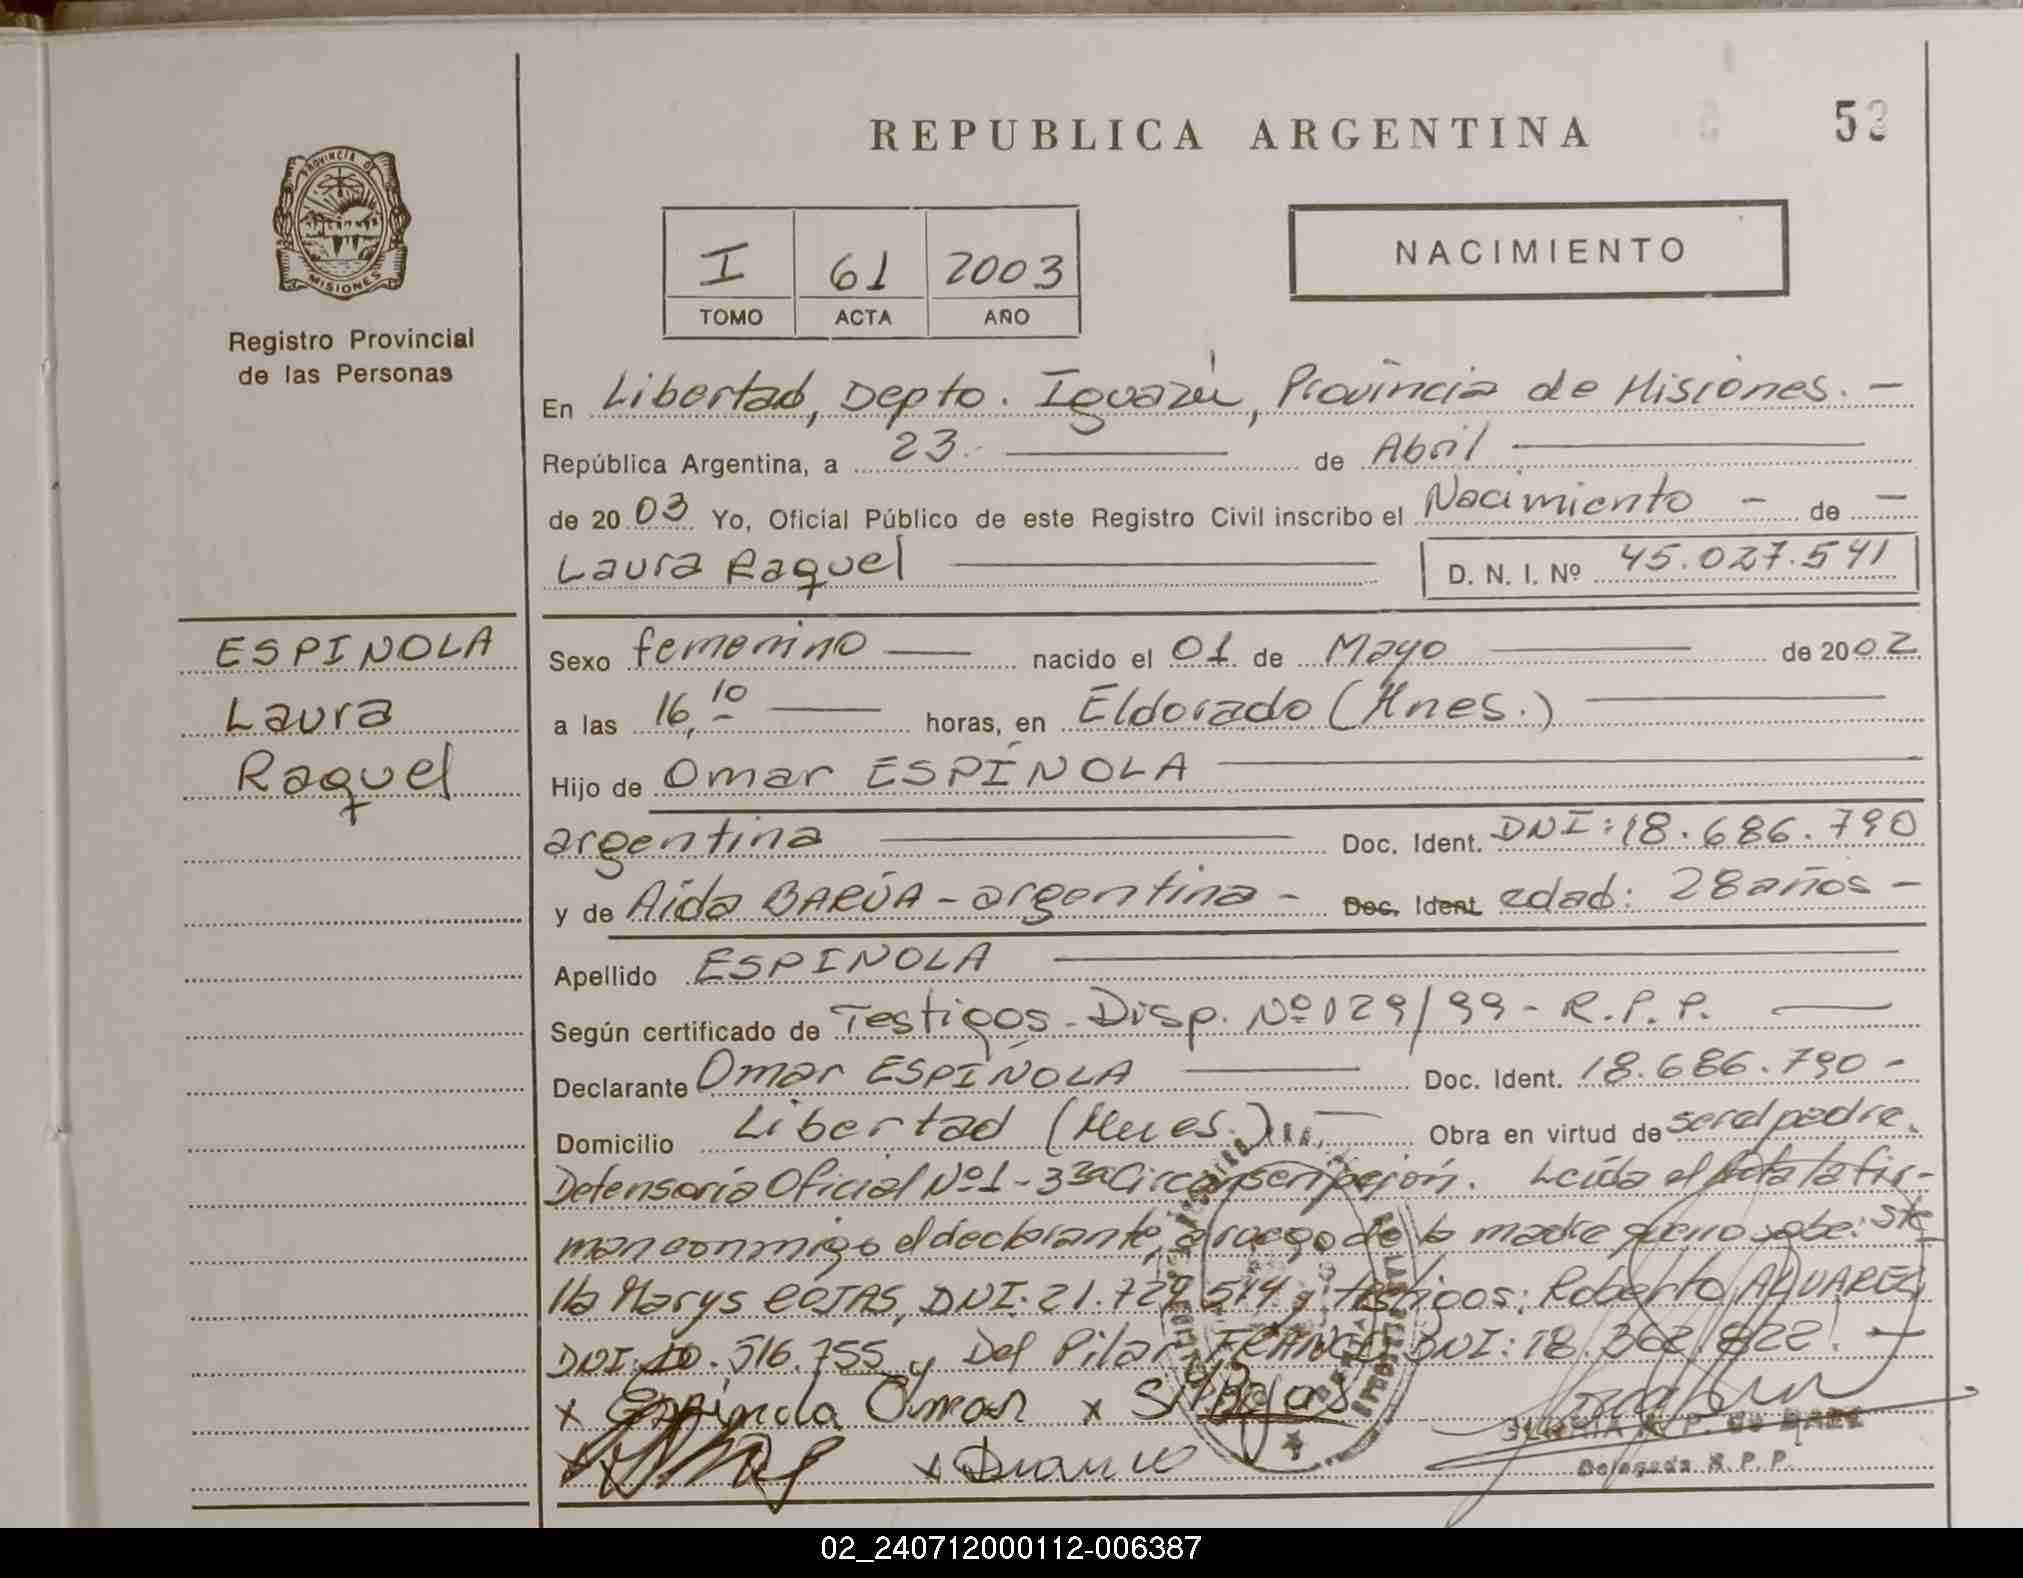 REPUBLICA ARGENTINA
52
PROVINCIA DE MISIONES
Registro Provincial
de las Personas
I 61 2003
TOMO ACTA AÑO
NACIMIENTO
En Libertad, Depto. Iguazú, Provincia de Misiones. —
República Argentina, a 23. — de Abril —
de 2003 Yo, Oficial Público de este Registro Civil inscribo el Nacimiento - de —
Laura Raquel — D. N. I. Nº 45.027.541
ESPINOLA
Laura
Raquel
Sexo femenino — nacido el 01 de Mayo — de 2002
a las 16,10 — horas, en Eldorado (Mnes.) —
Hijo de Omar ESPÍNOLA —
argentina — Doc. Ident. DNI: 18.686.790
y de Aída BARÚA - argentina - Doc. Ident edad: 28 años -
Apellido ESPINOLA —
Según certificado de Testigos - Disp. Nº 029/99 - R.P.P. —
Declarante Omar ESPÍNOLA — Doc. Ident. 18.686.790 -
Domicilio Libertad (Mnes.) — Obra en virtud de ser el padre.
Defensoría Oficial Nº1 - 3ra Circunscripción. Leída el Acta la fir-
man conmigo el declarante, a ruego de la madre que no sabe: Ste-
lla Marys ROJAS, DNI. 21.729.514 y testigos: Roberto ALVAREZ
DNI: 10.516.755 y Del Pilar FRANCO DNI: 18.362.822. —
x Espinola Omar x S. Rojas
x x Franco
P. de BAEZ
Delegada R.P.P.
02_240712000112-006387